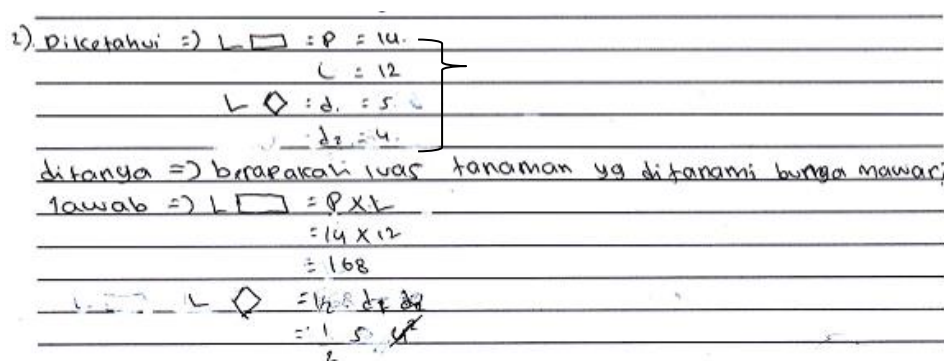 2). Diketahui => L ▭ : P = 14.
L = 12
L ◇ : d1 = 5
d2 = 4.
ditanya => berapakah luas tanaman yg ditanami bunga mawar;
Jawab => L ▭ = P X L
= 14 X 12
= 168
L ◇ = 1/2 d1 d2
= 1/2 5 4²